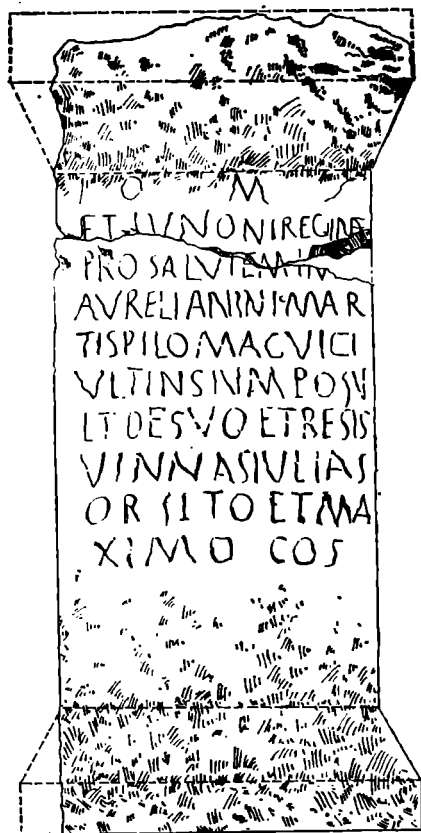 I O M
ET IVNONI REGINE
PRO SALVTEM
AVRELIANINI MAR
TISPILOMACVICI
VLTINSIVMPOSV
LTDESVO ETRESIS
VINNASIVLIAS
ORSITO ETMA
XIMO COS